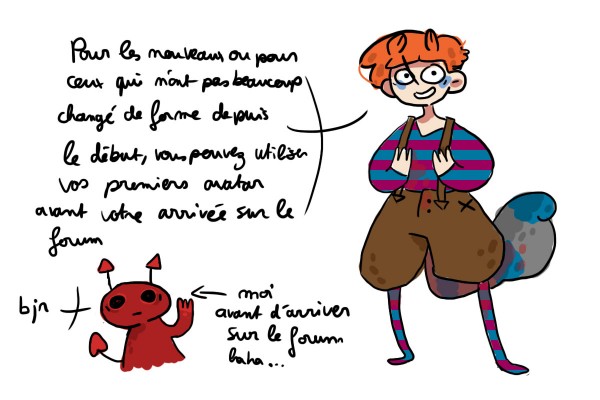 Pour les nouveaux ou pour
ceux qui n'ont pas beaucoup
changé de forme depuis
le début, vous pouvez utiliser
vos premiers avatar
avant votre arrivée sur le
forum
bjr
moi
avant d'arriver
sur le forum
haha...